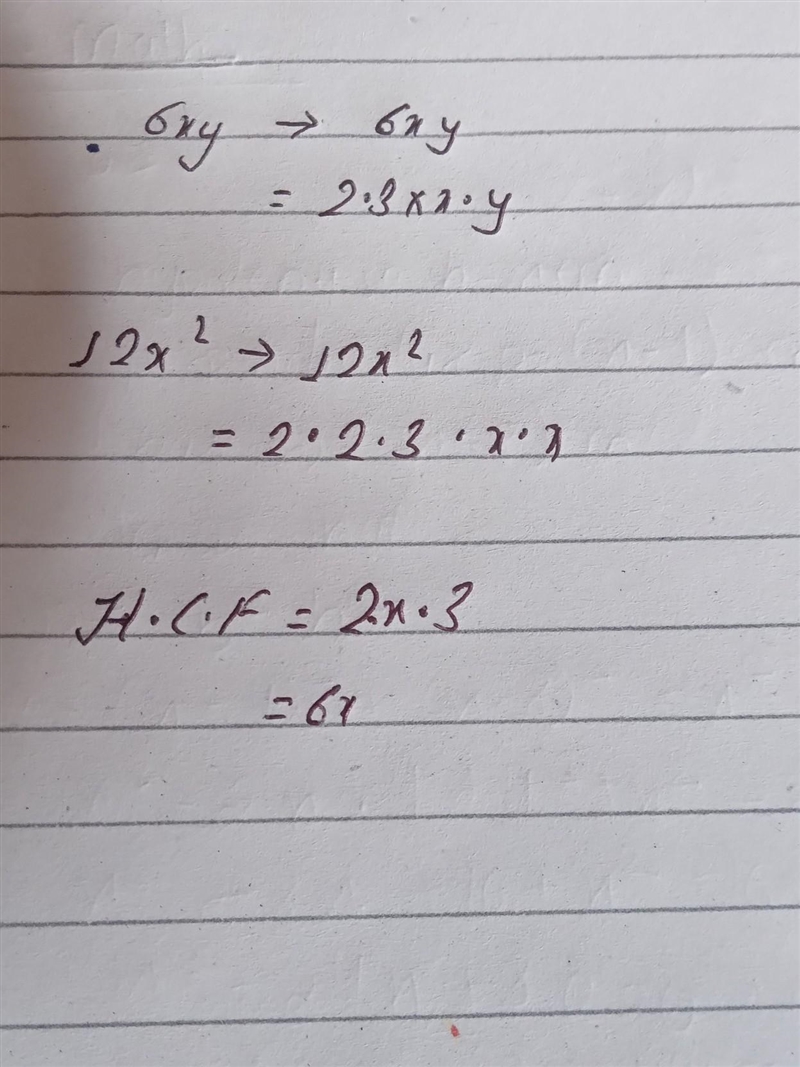 6xy → 6xy
= 2·3×x·y
12x² → 12x²
= 2·2·3·x·x
H.C.F = 2·x·3
= 6x